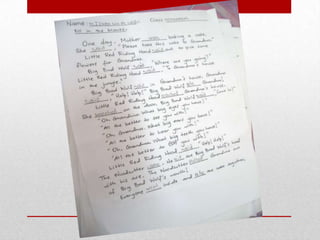 Name:
Class:
Fill in the blanks:
One day, Mother was baking a cake.
She said, "Please take this cake to Grandma."
Little Red Riding Hood and to pick some
flowers for Grandma.
Big Bad Wolf said, "Where are you going?"
Little Red Riding Hood said, "To Grandma's house
in the jungle."
Big Bad Wolf in Grandma's house. Grandma
said, "Help! Help!" Big Bad Wolf Grandma.
Little Red Riding Hood reached Grandma's house.
She knocked on the door, Big Bad Wolf said, "Come in!"
"Oh, Grandma what big eyes you have!"
"All the better to see you with."
"Oh, Grandma what big ears you have!"
"All the better to hear you with."
"Oh, Grandma what big teeth you have!"
"All the better to eat you with!"
Little Red Riding Hood said, "Help! Help!"
The Woodcutter came. He Big Bad Wolf's head
with his axe. The Woodcutter pulled Grandma out
of Big Bad Wolf's mouth!
Everyone went inside and ate the cake together.